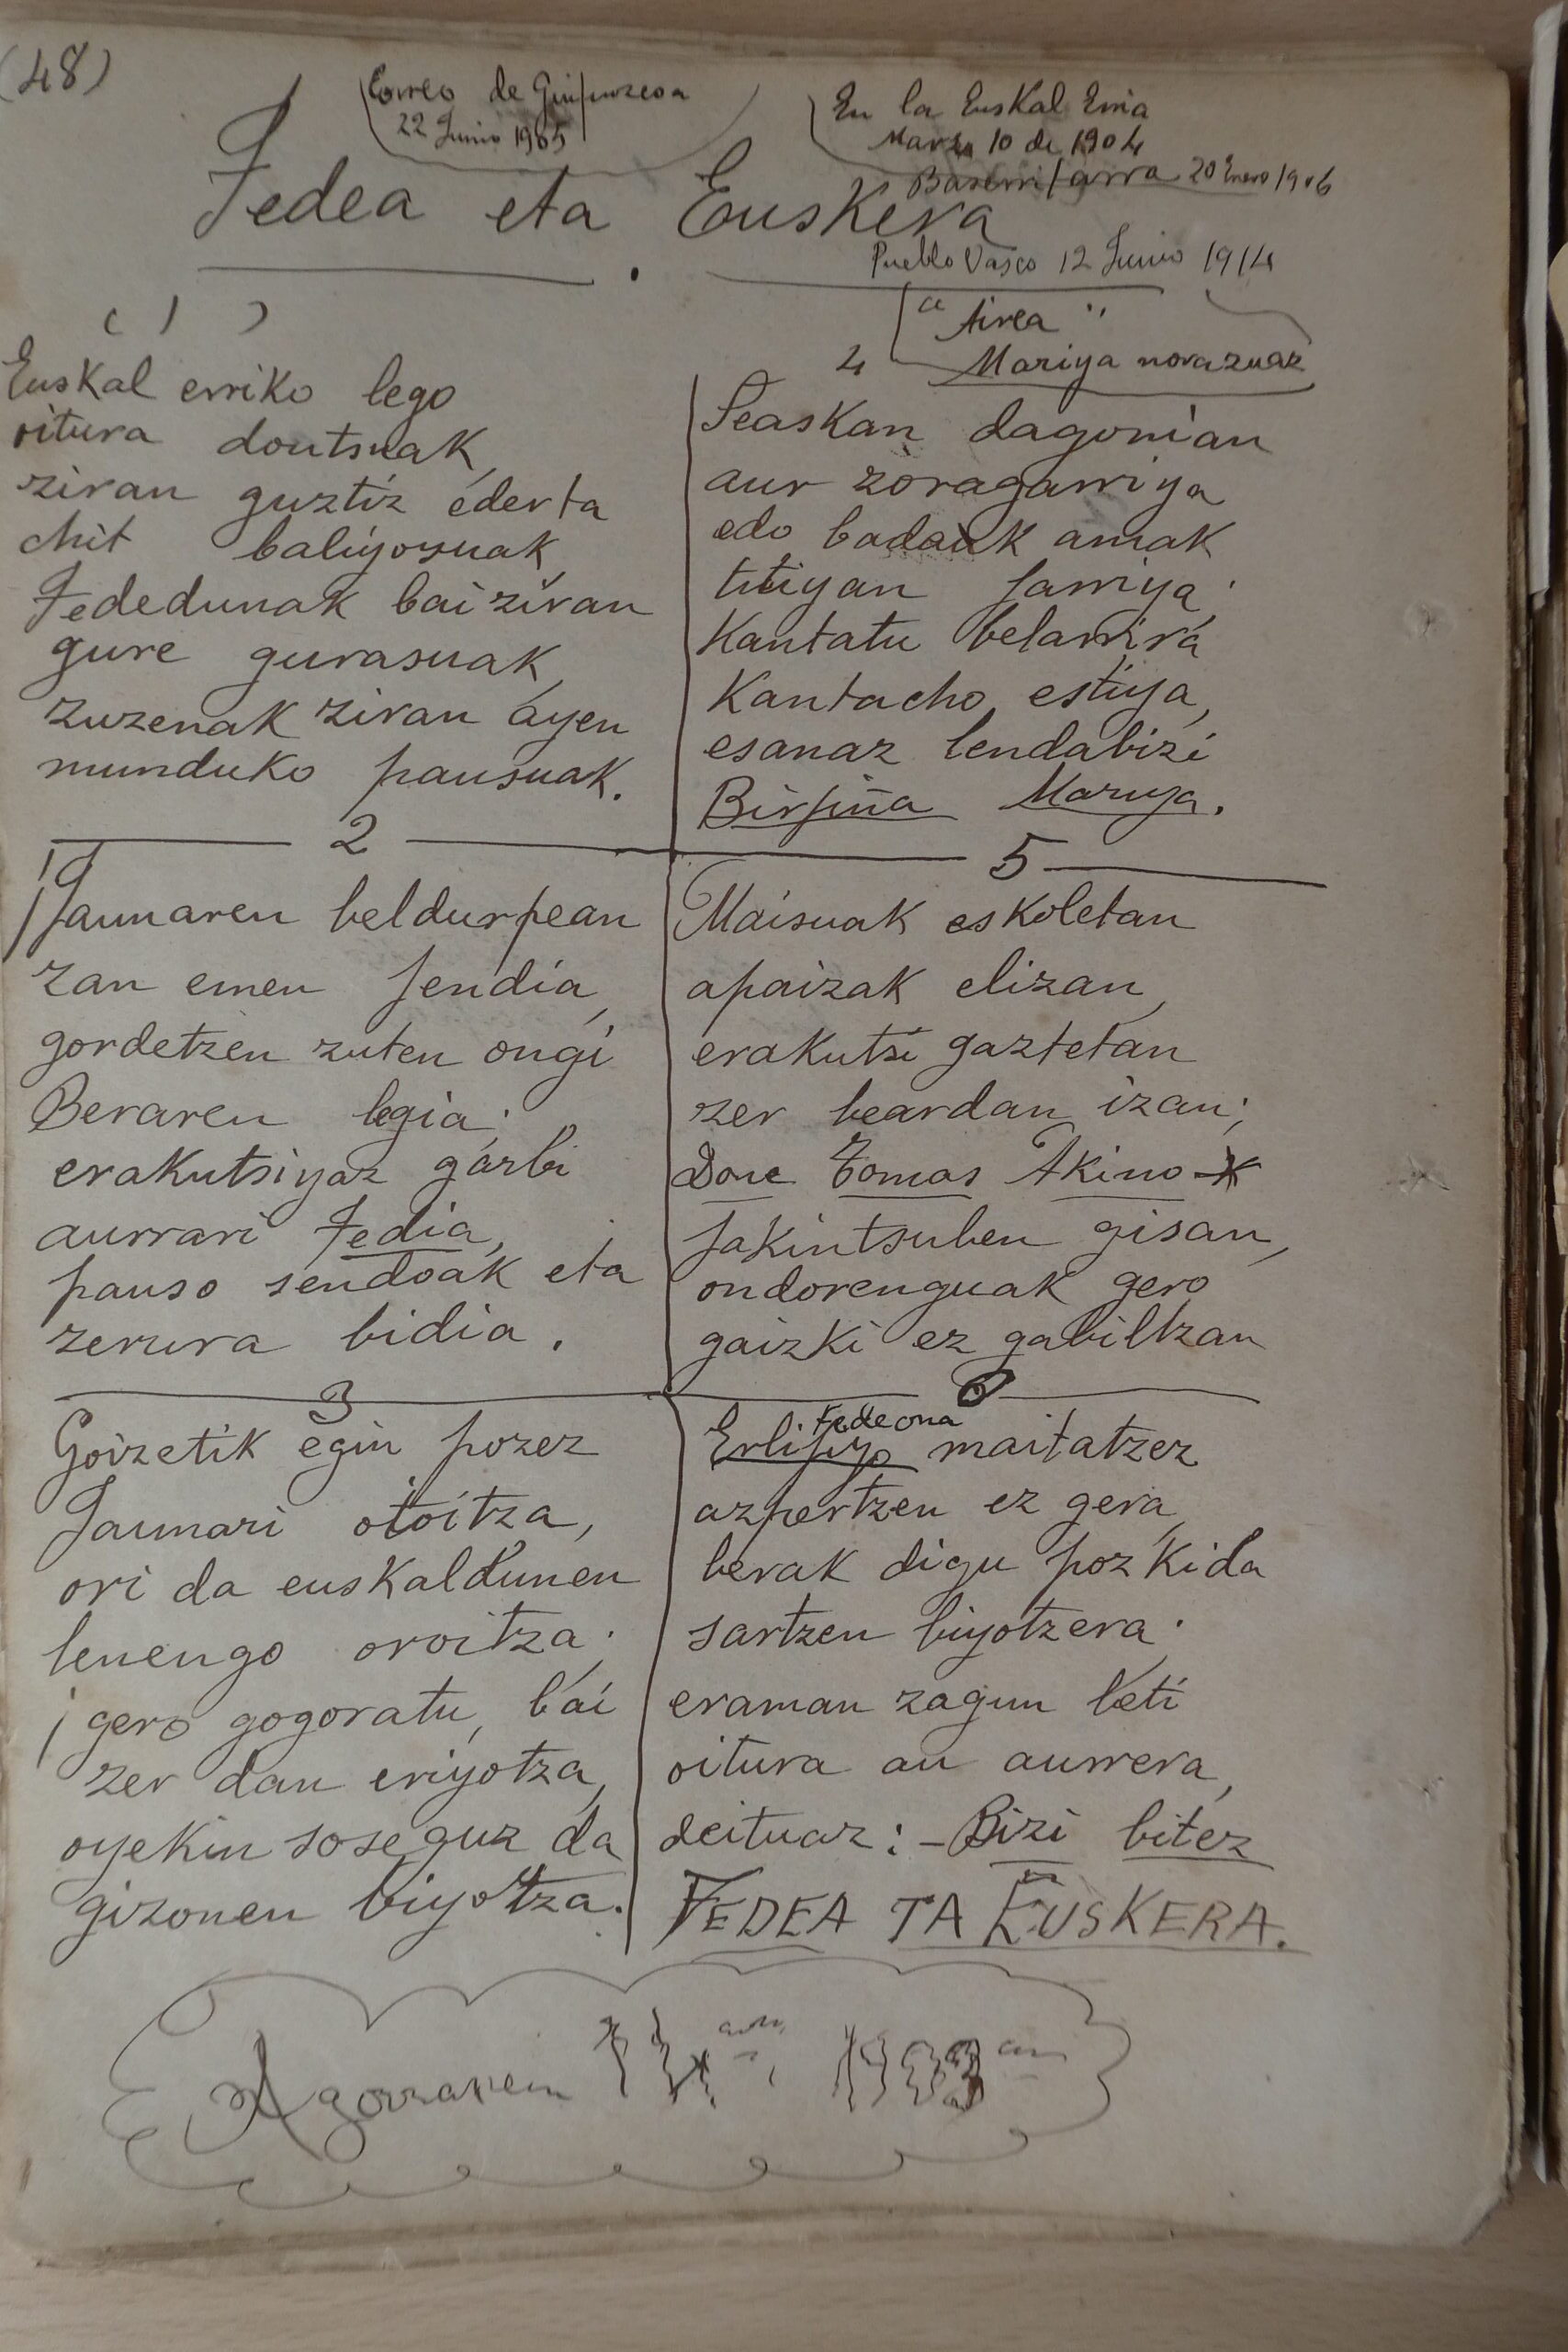 (48)
Correo de Guipuzcoa
22 Junio 1905
En la Euskal Erria
Marzo 10 de 1904
Baserritarra 20 Enero 1906
Fedea eta Euskera
Pueblo Vasco 12 Junio 1914
"Airea"
Mariya nora zuaz
(1)
Euskal erriko lego
oitura dontsuak,
ziran guztiz ederta
chit baliyosuak,
Fededunak bai ziran
gure gurasuak,
zuzenak ziran ayen
munduko pausuak.
2
¡Jaunaren beldurpean
zan emen jendia,
gordetzen zuten ongi
Beraren legia;
erakutsiyaz garbi
aurrari fedia,
pauso sendoak eta
zerura bidia.
3
Goizetik egin pozez
Jaunari otoitza,
ori da euskaldunen
lenengo oroitza;
¡gero gogoratu, bai
zer dan eriyotza,
oyekin soseguz da
gizonen biyotza.
4
Seaskan dagonian
aur zoragarriya
edo badauk amak
titiyan jarriya;
Kantatu belarrira
Kantacho estiya,
esanaz lendabizi
Birjiña Mariya.
5
Maisuak eskoletan
apaizak elizan,
erakutsi gaztetan
zer beardan izan;
Done Tomas Akino-k
jakintsuben gisan,
ondorenguak gero
gaizki ez gabiltzan
6
Fedeona
Erlijiyo maitatzez
azpertzen ez gera,
berak digu pozkida
sartzen biyotzera;
eraman zagun beti
oitura au aurrera,
deituaz: -Bizi bitez
FEDEA TA EUSKERA.
Agorraren 1903 an